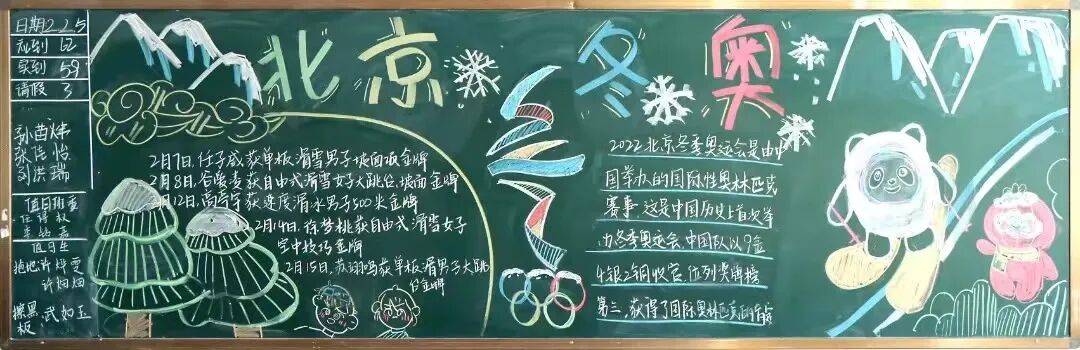 日期2.25
礼到 62
实到 59
请假 3
张佳怡
刘洪瑞
值日班委
值日生
擦黑板 武如玉
北京冬奥
2月7日,任子威获单板滑雪男子坡面板金牌
2月8日,谷爱凌获自由式滑雪女子大跳台、坡面金牌
2月12日,高亭宇获速度滑冰男子500米金牌
2月14日,徐梦桃获自由式滑雪女子
空中技巧金牌
2月15日,苏翊鸣获单板滑男子大跳
台金牌
2022北京冬季奥运会是由中
国举办的国际性奥林匹克
赛事,这是中国历史上首次举
办冬季奥运会,中国队以9金
4银2铜收官,位列奖牌榜
第三,获得了国际奥林匹克的